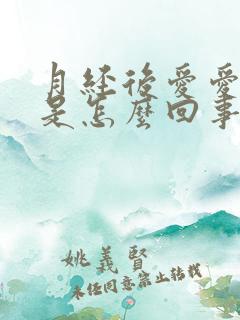 月経後愛愛
是怎麼回事
姚義賢
未經同意禁止轉載